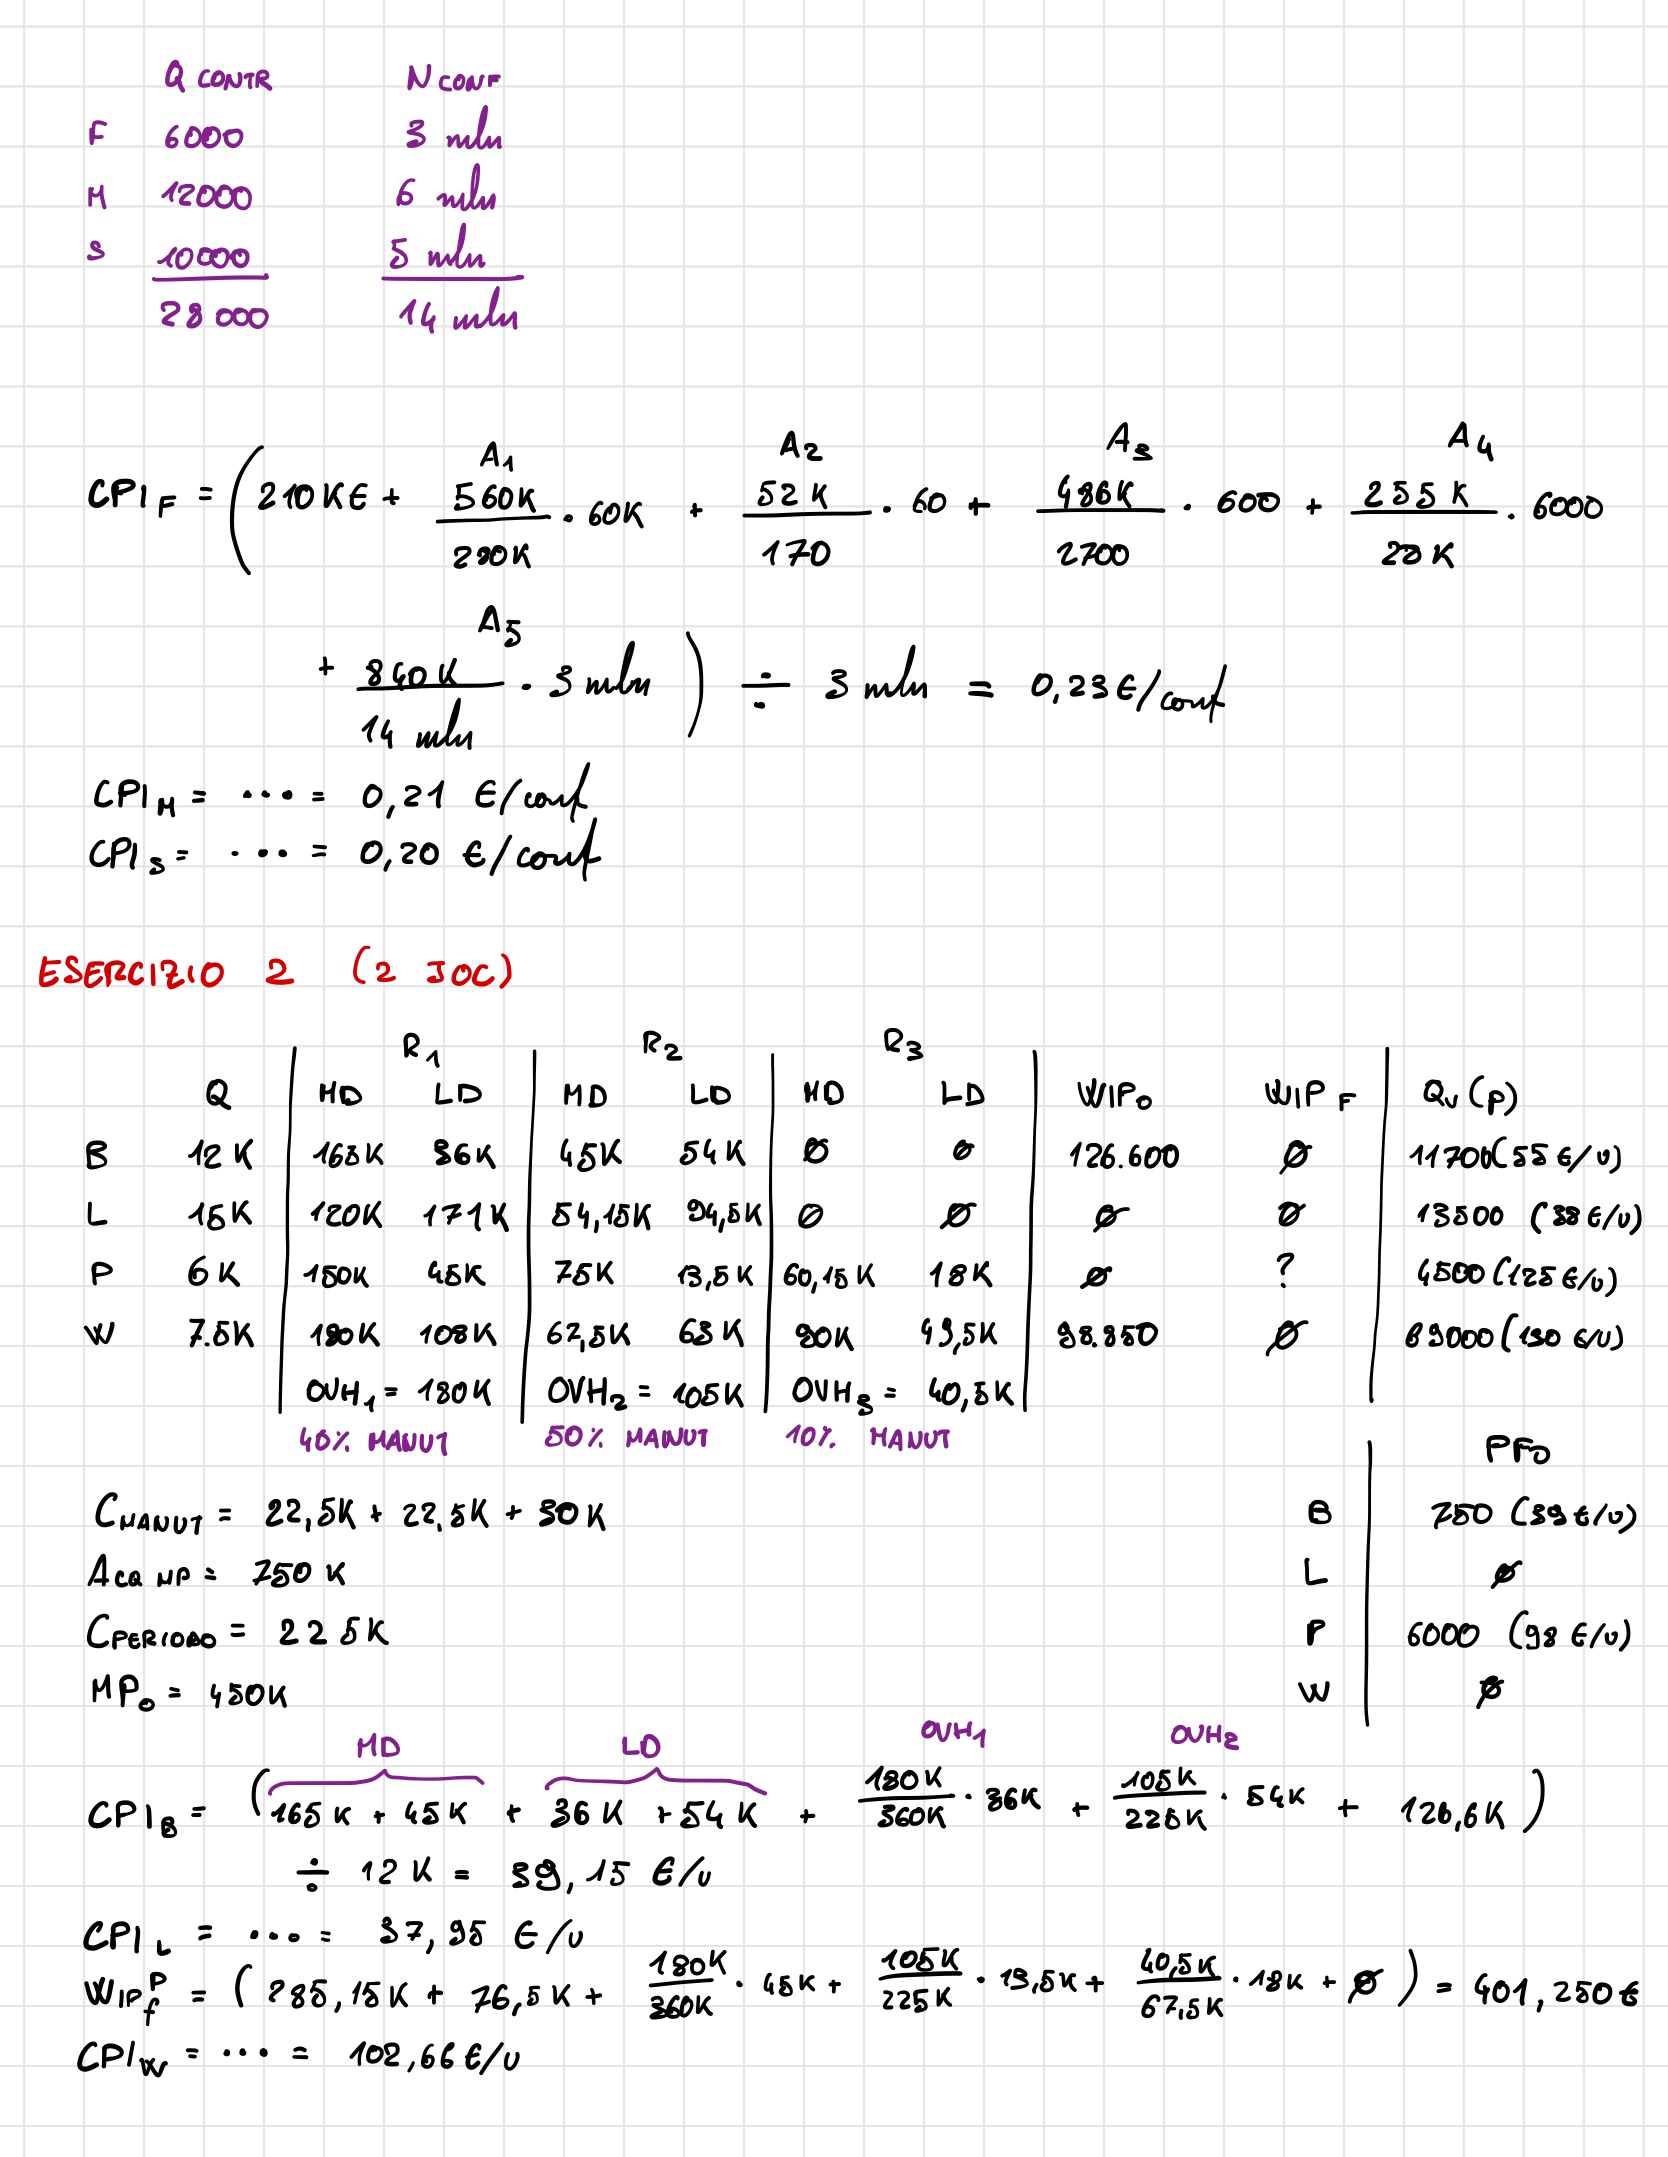 Q CONTR N CONF
F 6000 3 mln
M 12000 6 mln
S 10000 5 mln
28000 14 mln
A1 A2 A3 A4
CPI F = ( 210K€ + 560K/280K · 60K + 52K/170 · 60 + 486K/2700 · 600 + 255K/28K · 6000
A5
+ 840K/14 mln · 3 mln ) ÷ 3 mln = 0,23€/conf
CPI M = ... = 0,21 €/conf
CPI S = ... = 0,20 €/conf
ESERCIZIO 2 (2 JOC)
R1 R2 R3
Q MD LD MD LD MD LD WIP0 WIP F Qv (p)
B 12K 165K 36K 45K 54K Ø Ø 126.600 Ø 11700(55 €/u)
L 15K 120K 171K 54,15K 94,5K Ø Ø Ø Ø 13500 (38€/u)
P 6K 150K 45K 75K 13,5K 60,15K 18K Ø ? 4500(125€/u)
W 7.5K 180K 108K 62,5K 63K 90K 49,5K 98.850 Ø 69000(130 €/u)
OVH1 = 180K OVH2 = 105K OVH3 = 40,5K
40% MANUT 50% MANUT 10% MANUT
PF0
CMANUT = 22,5K + 22,5K + 30K B 750 (39€/u)
ACQ MP = 750 K L Ø
CPERIODO = 225K P 6000 (98 €/u)
MP0 = 450K W Ø
MD LD OVH1 OVH2
CPI B = ( 165K + 45K + 36K + 54K + 180K/360K · 36K + 105K/225K · 54K + 126,6K )
÷ 12K = 39,15 €/u
CPI L = ... = 37,95 €/u
WIP f P = ( 285,15K + 76,5K + 180K/360K · 45K + 105K/225K · 13,5K + 40,5K/67,5K · 18K + Ø ) = 401,250€
CPI W = ... = 102,66€/u